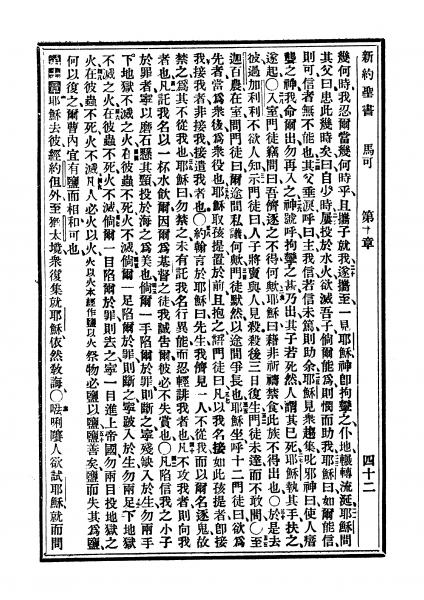 新約聖書 馬可 第十章 四十二
幾何時我忍爾當幾何時乎且攜子就我遂攜至一見耶穌神卽拘攣之仆地輾轉流涎耶穌問
其父曰患此幾時矣曰自少時屢投於水火欲滅吾子倘爾能爲則憫而助我耶穌曰如爾能信
則可信者無不能也其父垂淚呼曰主我信若信未篤則助余耶穌見衆趨集叱邪神曰使人瘖
聾之神我命爾出勿再入之神號呼拘攣之甚乃出其子若死然人謂其已死耶穌執其手扶之
遂起○入室門徒竊問曰吾儕逐之不得何歟耶穌曰藉非祈禱禁食此族不得出也○於是去
彼過加利利不欲人知示門徒曰人子將賣與人見殺殺後三日復生門徒未達而不敢問○至
迦百農在室問門徒曰爾途間私議何歟門徒默然以途間爭長也耶穌坐呼十二門徒曰欲爲
先者當爲衆後爲衆役也耶穌取孩提置於前且抱之謂門徒曰凡以我名接如此孩提者卽接
我接我者非接我接遣我者也○約翰言於耶穌曰先生我儕見一人不從我而以爾名逐鬼故
禁之爲其不從我也耶穌曰勿禁之未有託我名行異能而忍輕誹我者也凡不攻我者則向我
者也凡託我名以一杯水飲爾因爾爲基督之徒我誠告爾彼必不失賞也○凡陷信我之小子
於罪者寧以磨石懸其頸投於海之爲美也倘爾一手陷爾於罪則斷之寧殘缺入於生勿兩手
下地獄不滅之火在彼蟲不死火不滅倘爾一足陷爾於罪則斷之寧跛入於生勿兩足下地獄
不滅之火在彼蟲不死火不滅倘爾一目陷爾於罪則去之寧一目進上帝國勿兩目投地獄之
火在彼蟲不死火不滅凡人必火以火火以火本經作鹽以火祭物必鹽以鹽鹽善矣鹽而失其爲鹽
何以復之爾曹內宜有鹽而相和可也
耶穌去彼經約但外至猶太境衆復集就耶穌依然敎誨○唎人欲試耶穌就而問